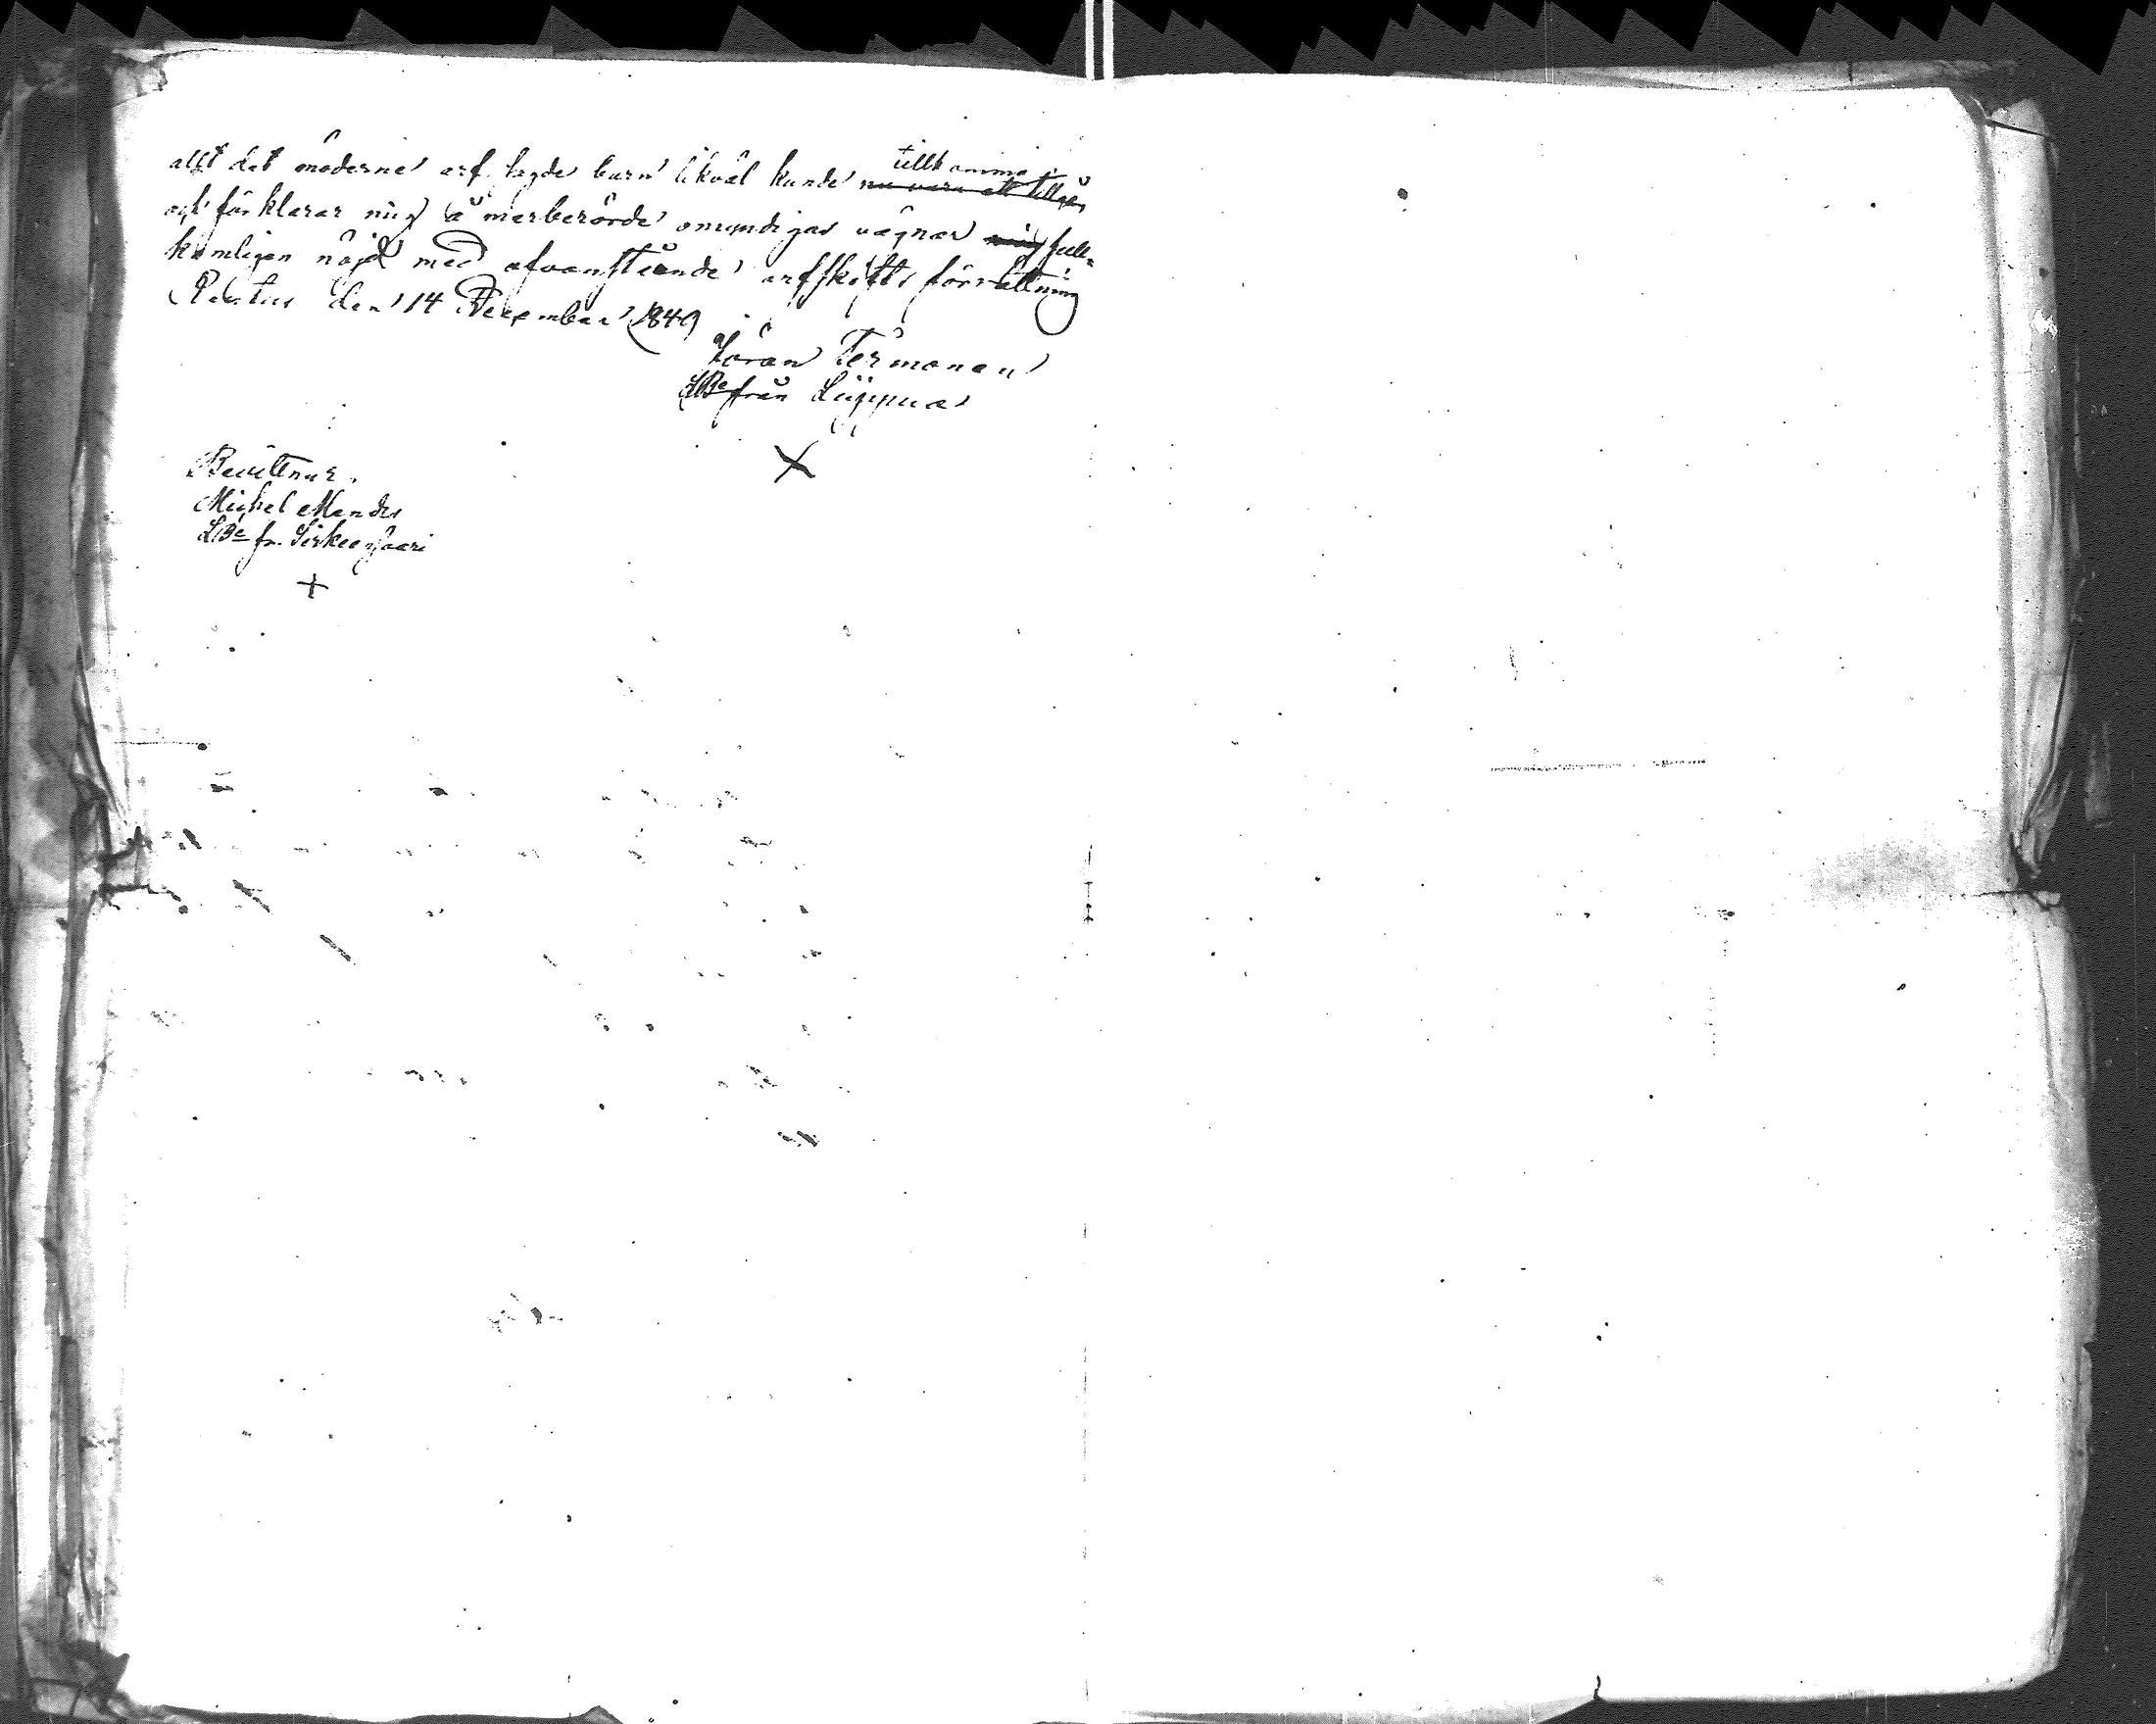 allt det möderne arf sagde barn likväl kunde tillkomma nu vara ett tillgå
och förklarar mig å merberörde omyndigas vägnar mig full-
komligen nöjd med ofvanstående arfskifts förrättning
den 14 December 1849
Göran Termonen
LBe från
X
Bevittnar.
Michel Mander
LBe fr. Sirkeensaari
+